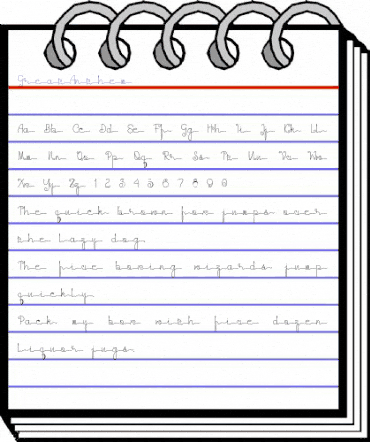 Aa Bb Cc Dd Ee Ff Gg Hh Ii Jj Kk Ll
Mm Nn Oo Pp Qq Rr Ss Tt Uu Vv Ww
Xx Yy Zz 1 2 3 4 5 6 7 8 9 0
The quick brown fox jumps over
the lazy dog.
The five boxing wizards jump
quickly.
Pack my box with five dozen
Liquor jugs.